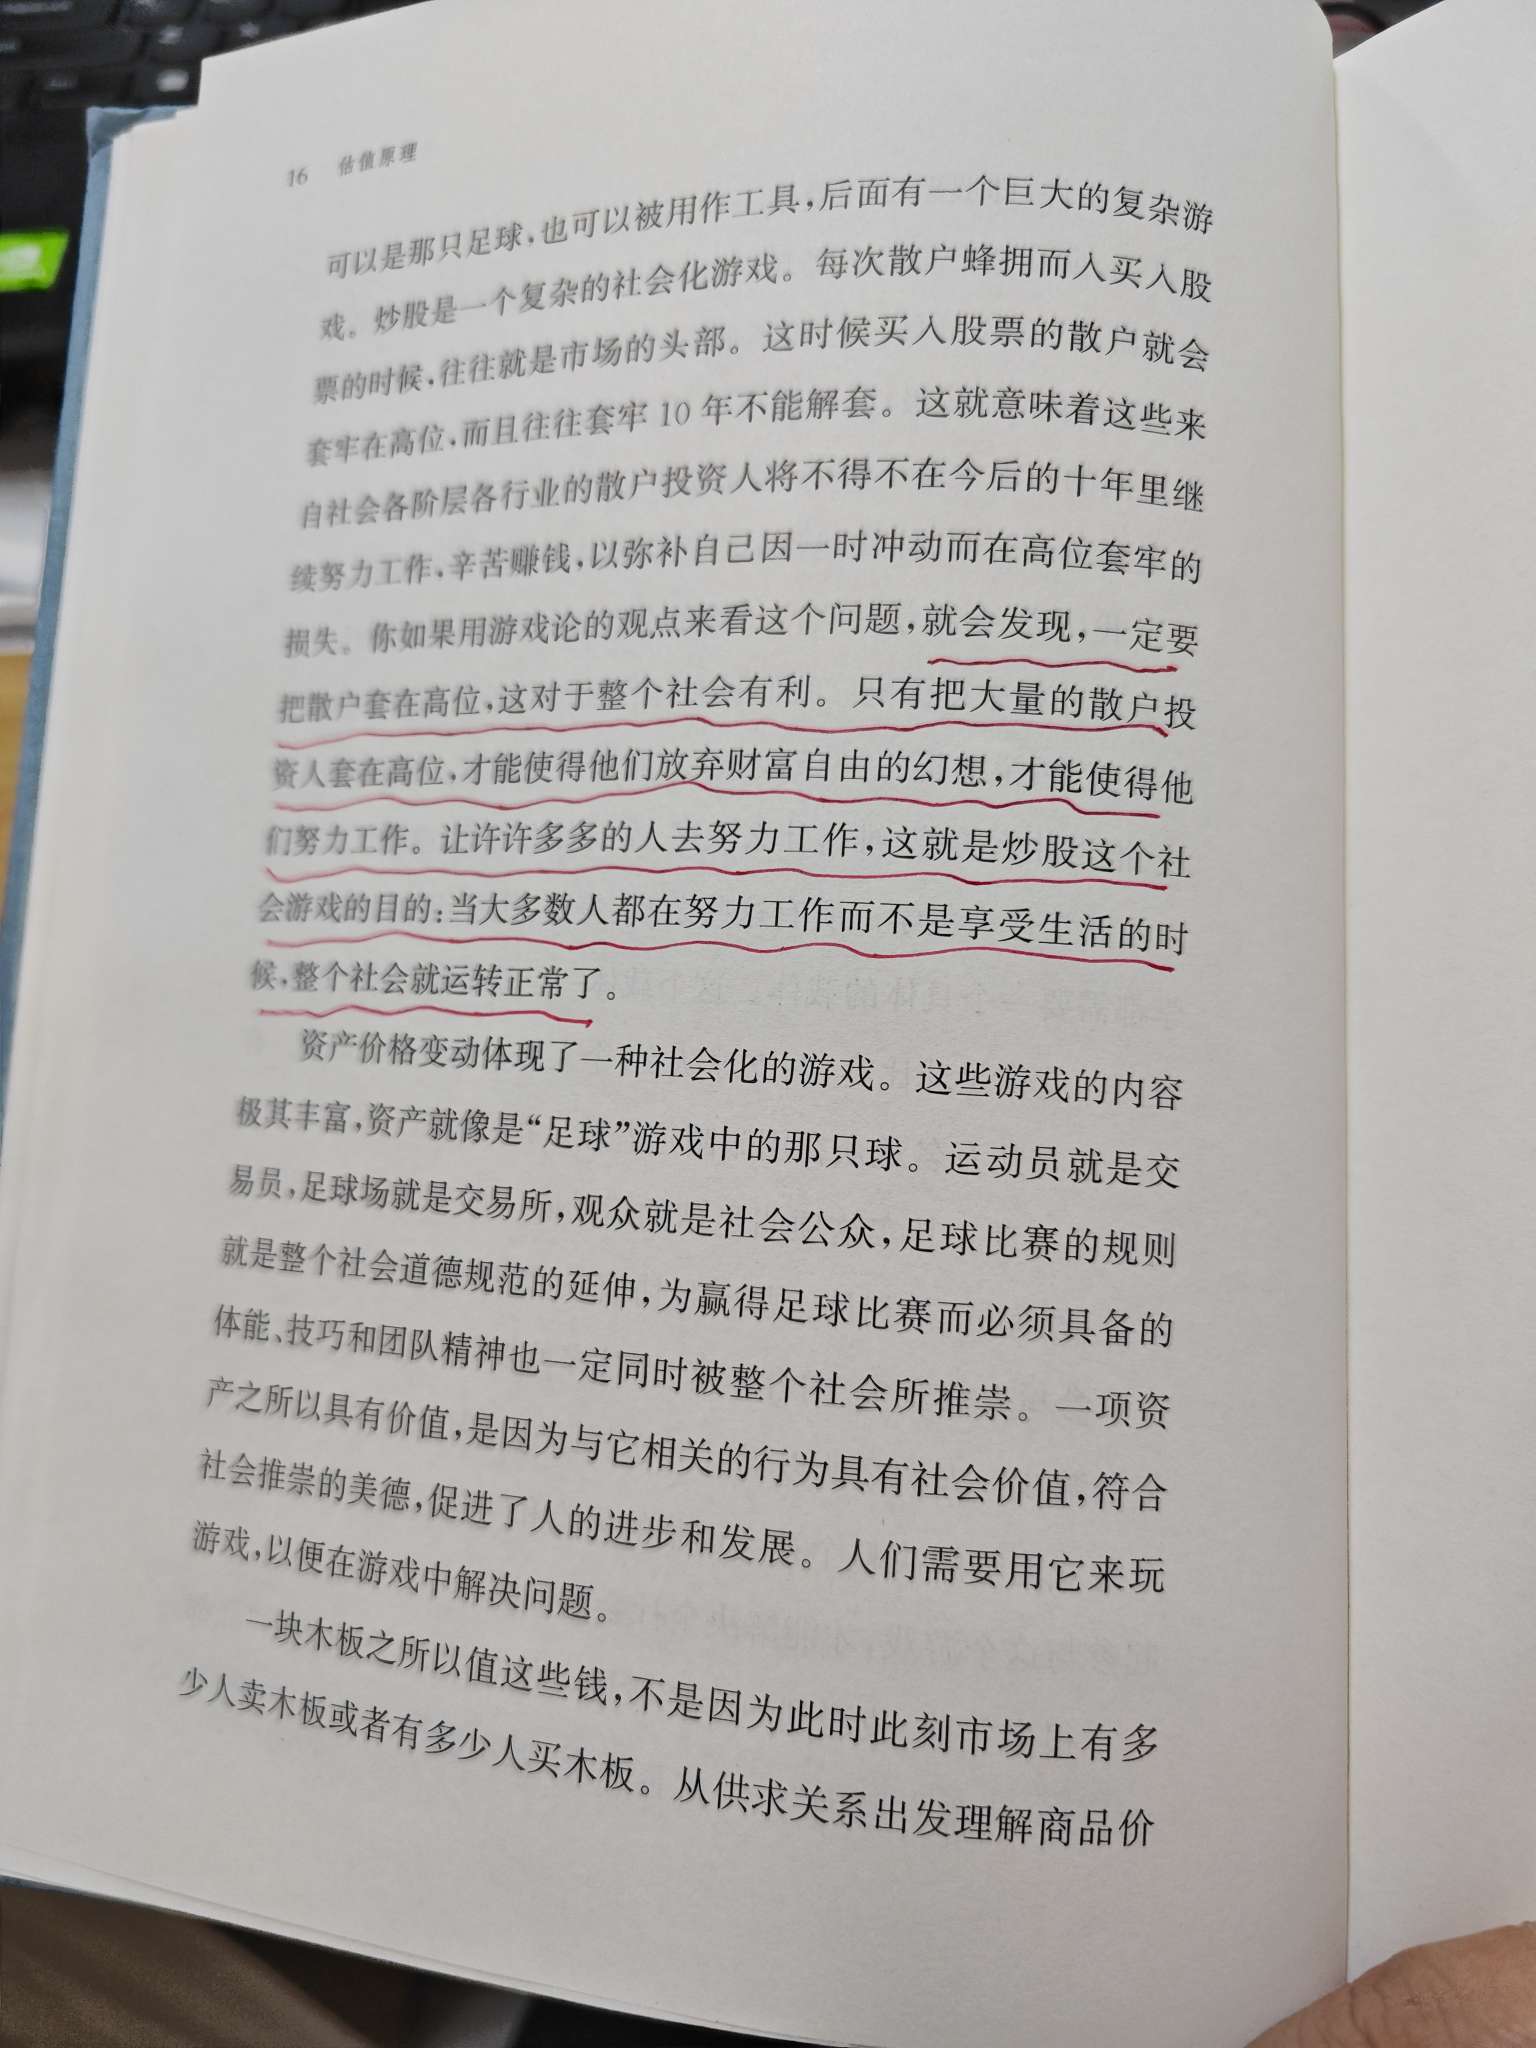 16 估值原理
可以是那只足球，也可以被用作工具，后面有一个巨大的复杂游
戏。炒股是一个复杂的社会化游戏。每次散户蜂拥而入买入股
票的时候，往往就是市场的头部。这时候买入股票的散户就会
套牢在高位，而且往往套牢 10 年不能解套。这就意味着这些来
自社会各阶层各行业的散户投资人将不得不在今后的十年里继
续努力工作、辛苦赚钱，以弥补自己因一时冲动而在高位套牢的
损失。你如果用游戏论的观点来看这个问题，就会发现，一定要
把散户套在高位，这对于整个社会有利。只有把大量的散户投
资人套在高位，才能使得他们放弃财富自由的幻想，才能使得他
们努力工作。让许许多多的人去努力工作，这就是炒股这个社
会游戏的目的：当大多数人都在努力工作而不是享受生活的时
候，整个社会就运转正常了。
资产价格变动体现了一种社会化的游戏。这些游戏的内容
极其丰富，资产就像是“足球”游戏中的那只球。运动员就是交
易员，足球场就是交易所，观众就是社会公众，足球比赛的规则
就是整个社会道德规范的延伸，为赢得足球比赛而必须具备的
体能、技巧和团队精神也一定同时被整个社会所推崇。一项资
产之所以具有价值，是因为与它相关的行为具有社会价值，符合
社会推崇的美德，促进了人的进步和发展。人们需要用它来玩
游戏，以便在游戏中解决问题。
一块木板之所以值这些钱，不是因为此时此刻市场上有多
少人卖木板或者有多少人买木板。从供求关系出发理解商品价